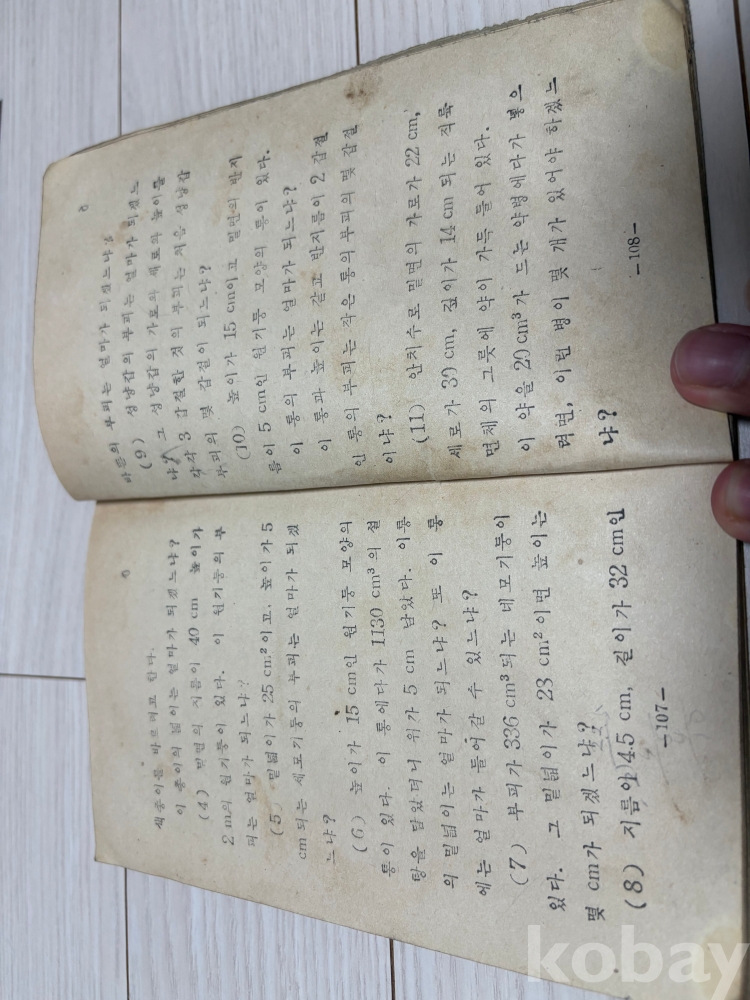 색종이를 바르려고 한다.
이 종이의 넓이는 얼마가 되겠느냐?
(4) 밑면의 지름이 40 cm 높이가
2 m의 원기둥이 있다. 이 원기둥의 부
피는 얼마가 되느냐?
(5) 밑넓이가 25 cm² 이고, 높이가 5
cm 되는 세모기둥의 부피는 얼마가 되겠
느냐?
(6) 높이가 15 cm인 원기둥 모양의
통이 있다. 이 통에다가 1130 cm³의 설
탕을 담았더니 위가 5 cm 남았다. 이통
의 밑넓이는 얼마가 되느냐? 또 이 통
에는 얼마가 들어갈 수 있느냐?
(7) 부피가 336 cm³ 되는 네모기둥이
있다. 그 밑넓이가 23 cm² 이면 높이는
몇 cm가 되겠느냐?
(8) 지름이 4.5 cm, 길이가 32 cm인
—107—
마름의 부피는 얼마가 되겠느냐?
(9) 성냥갑의 부피는 얼마가 되겠느
냐? 그 성냥갑의 가로와 세로와 높이를
각각 3 갑절한 것의 부피는 처음 성냥갑
부피의 몇 갑절이 되느냐?
(10) 높이가 15 cm이고 밑면의 반지
름이 5 cm인 원기둥 모양의 통이 있다.
이 통의 부피는 얼마가 되느냐?
이 통과 높이는 같고 반지름이 2 갑절
인 통의 부피는 작은 통의 부피의 몇 갑절
이냐?
(11) 안치수로 밑면의 가로가 22 cm,
세로가 30 cm, 깊이가 14 cm 되는 직륙
면체의 그릇에 약이 가득 들어 있다.
이 약을 20 cm³가 드는 약병에다가 넣으
려면, 이런 병이 몇 개가 있어야 하겠느
냐?
—108—
kobay